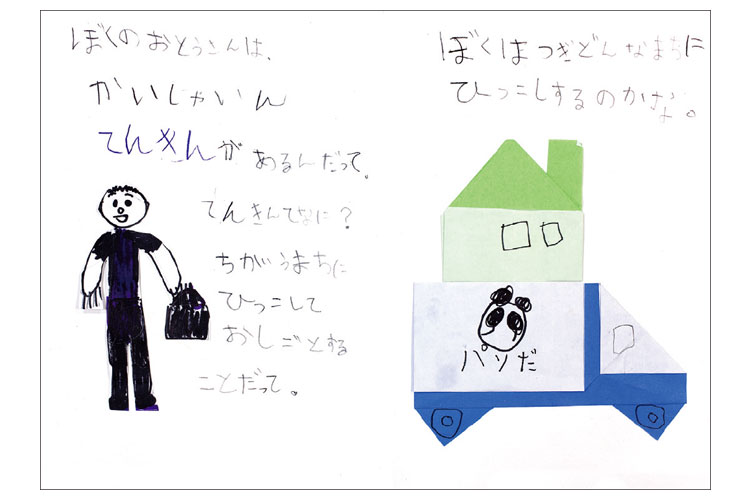 ぼくのおとうさんは、
かいしゃいん
てんきんがあるんだって。
てんきんてなに？
ちがうまちに
ひっこして
おしごとする
ことだって。
ぼくはつぎどんなまちに
ひっこしするのかな。
パンだ